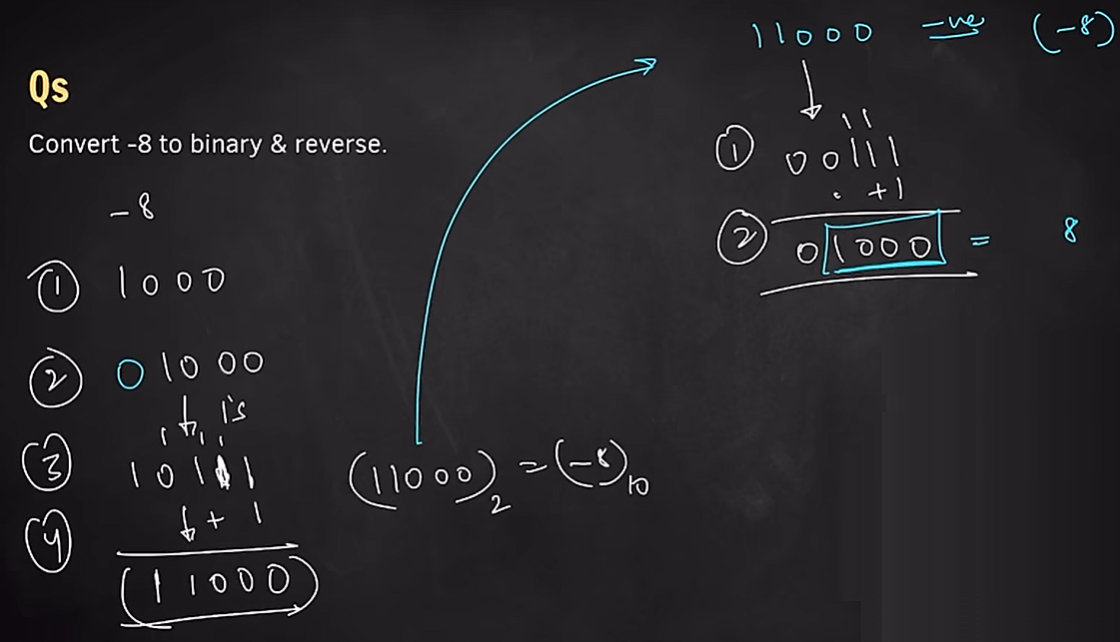 Qs
Convert -8 to binary & reverse.
-8
① 1000
② 01000
↓ 1's
③ 10111
↓ + 1
④
(11000)
(11000)₂ = (-8)₁₀
11000 -ve (-8)
↓
1 1
① 00111
+1
② 01000 = 8